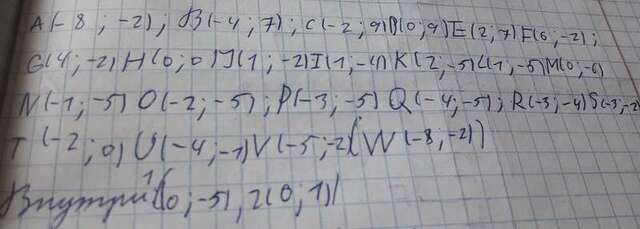 A(-8; -2); B(-4; 7); C(-2; 9) D(0; 9) E(2; 7) F(6; -2);
G(4; -2) H(0; 0) J(1; -2) I(1; -4) K(2; -5) L(1; -5) M(0; -6)
N(-1; -5) O(-2; -5); P(-3; -5) Q(-4; -5); R(-3; -4) S(-3; -2
T(-2; 0) U(-4; -1) V(-5; -2( W(-8; -2))
Внутри 1(0; -5), 2(0; 1)